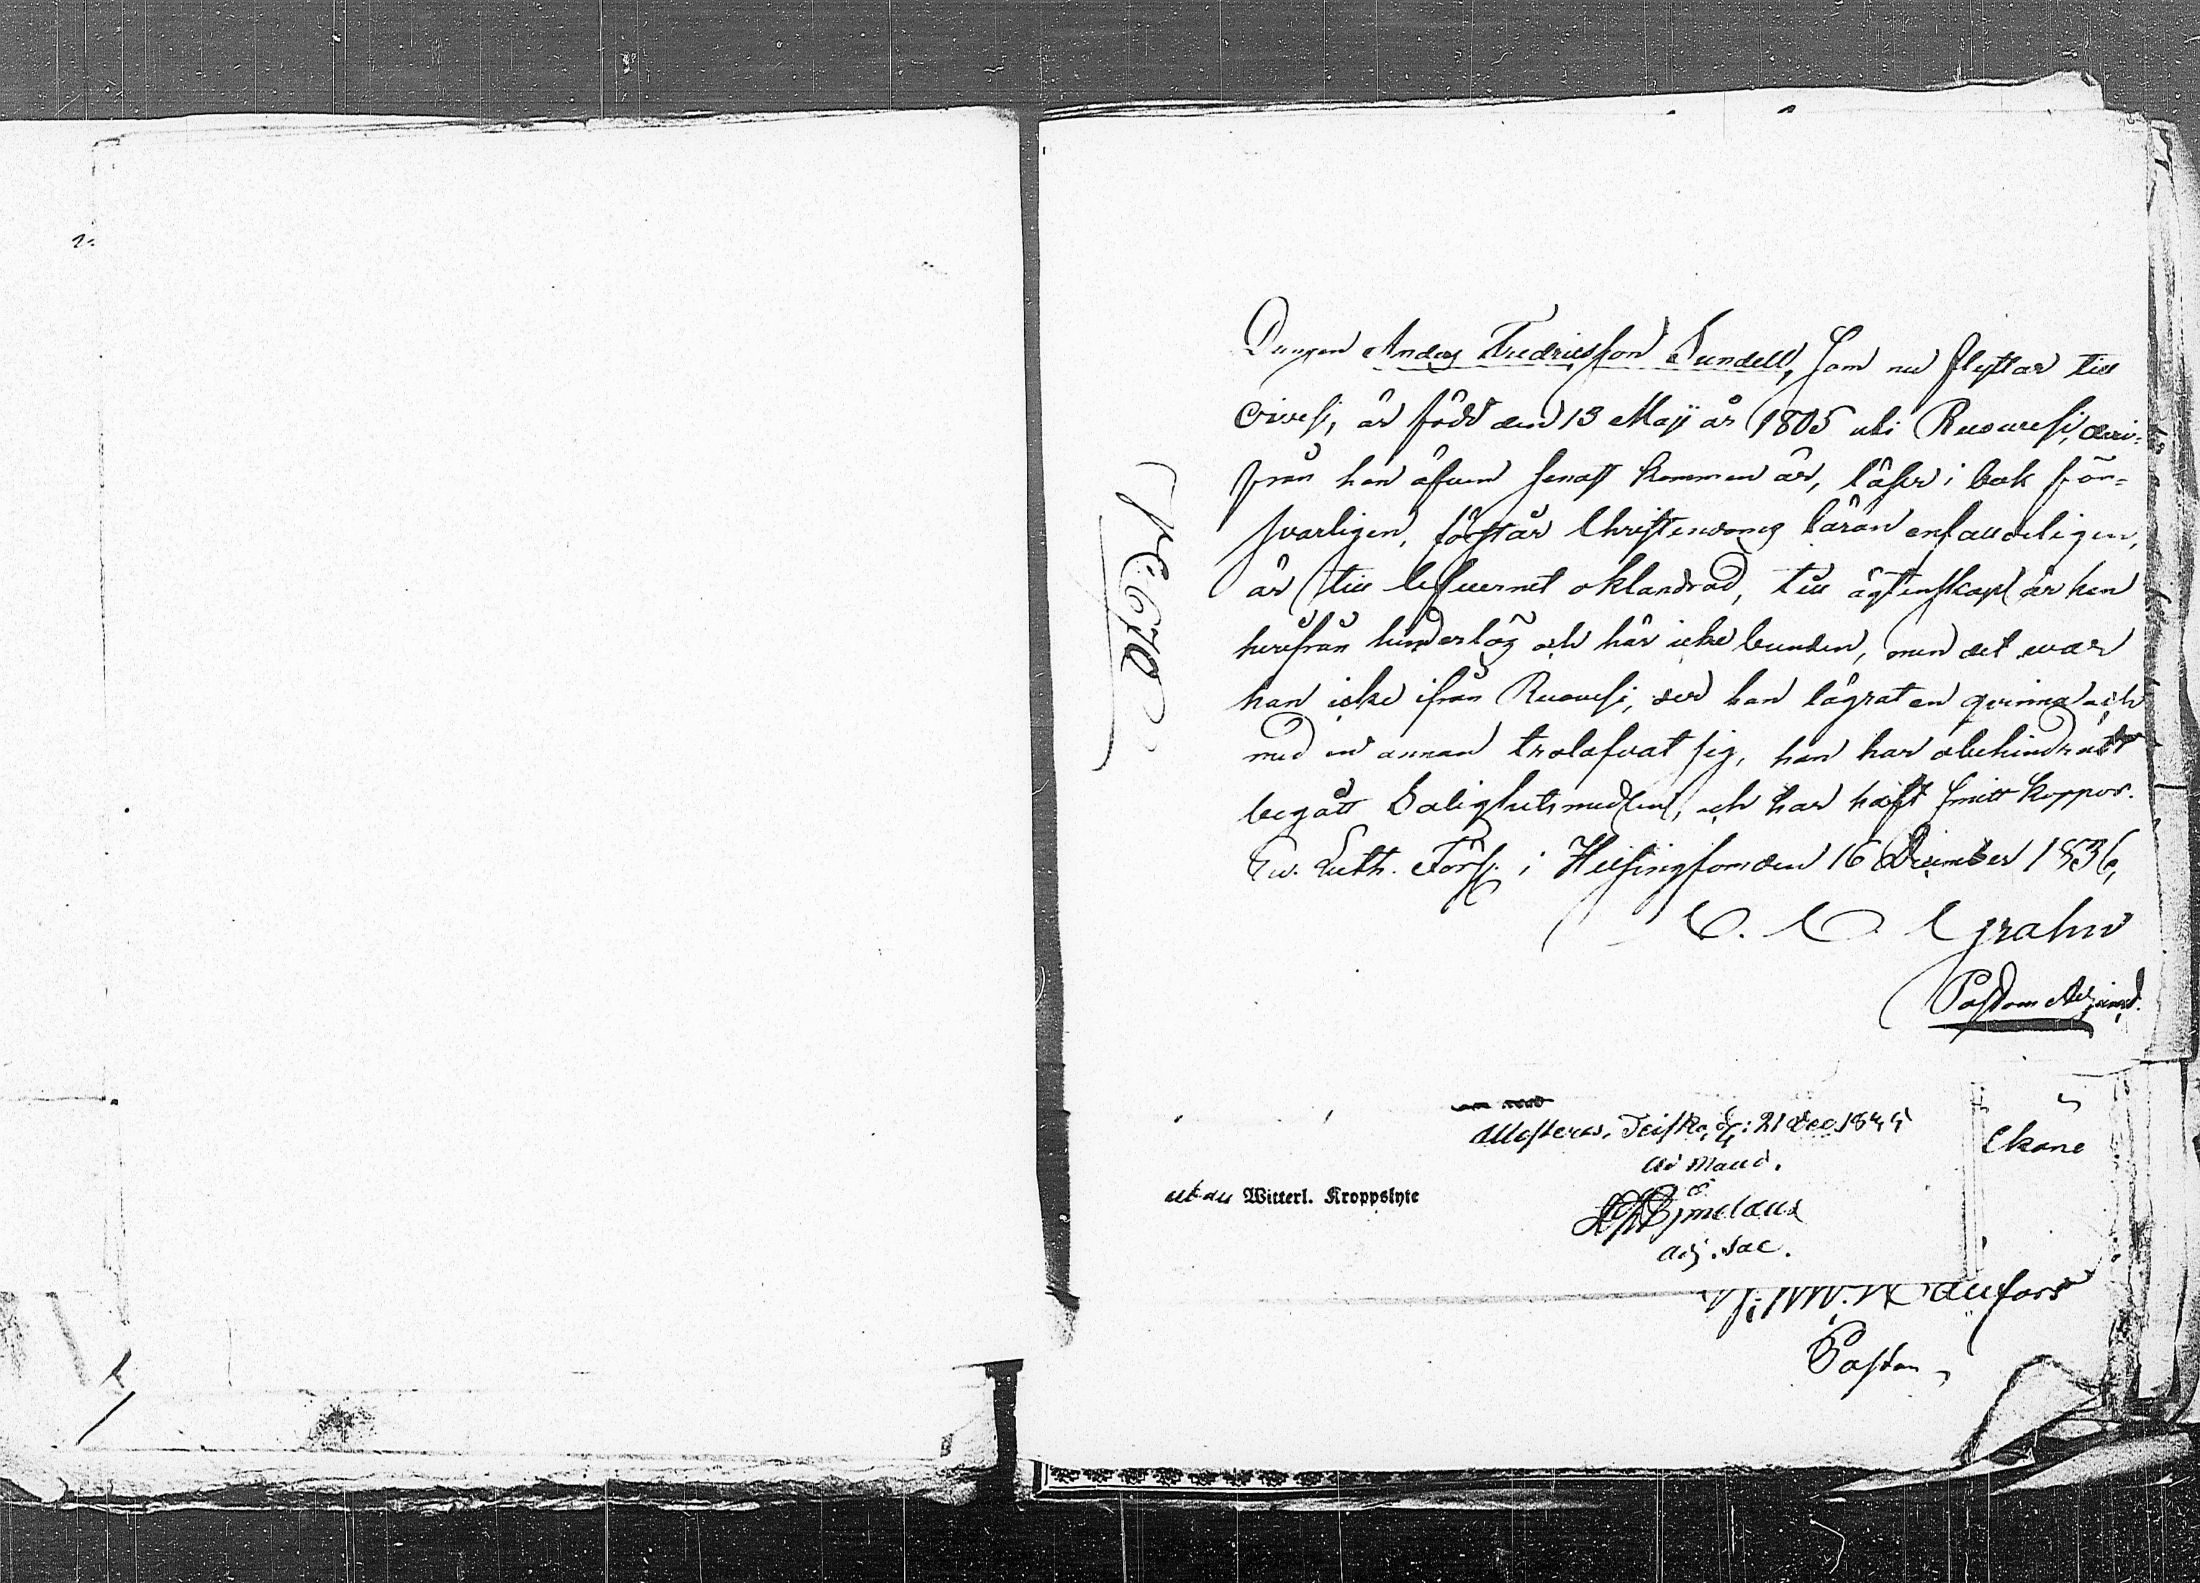 Drengen Anders Fredricsson Sundell, som nu flyttar till
Orivesi, är född den 13 Maji år 1805 uti Ruovesi, deri-
från han äfven senast kommen är, läser i bok för-
svarligen, förstår Christendoms läran enfalldeligen,
är till lefvernet oklandrad, till ägtenskap är han
härifrån hinderlös och här icke bunden, men det war
han icke ifrån Ruovesi, der han lägrat en qvinna och
med en annan trolofvat sig, han har obehindradt
begått Salighetsmedlen, och har haft smitt koppor.
Ew. Luth. Förs. i Helsingfors den 16 December 1836,
Grahn
Pastors Adjunct.
N:o 670
Teisko, d: 21 Dec. 1844
Ad Mand.
Adj. Sac.
Witterl. Kroppslyte
Pastor